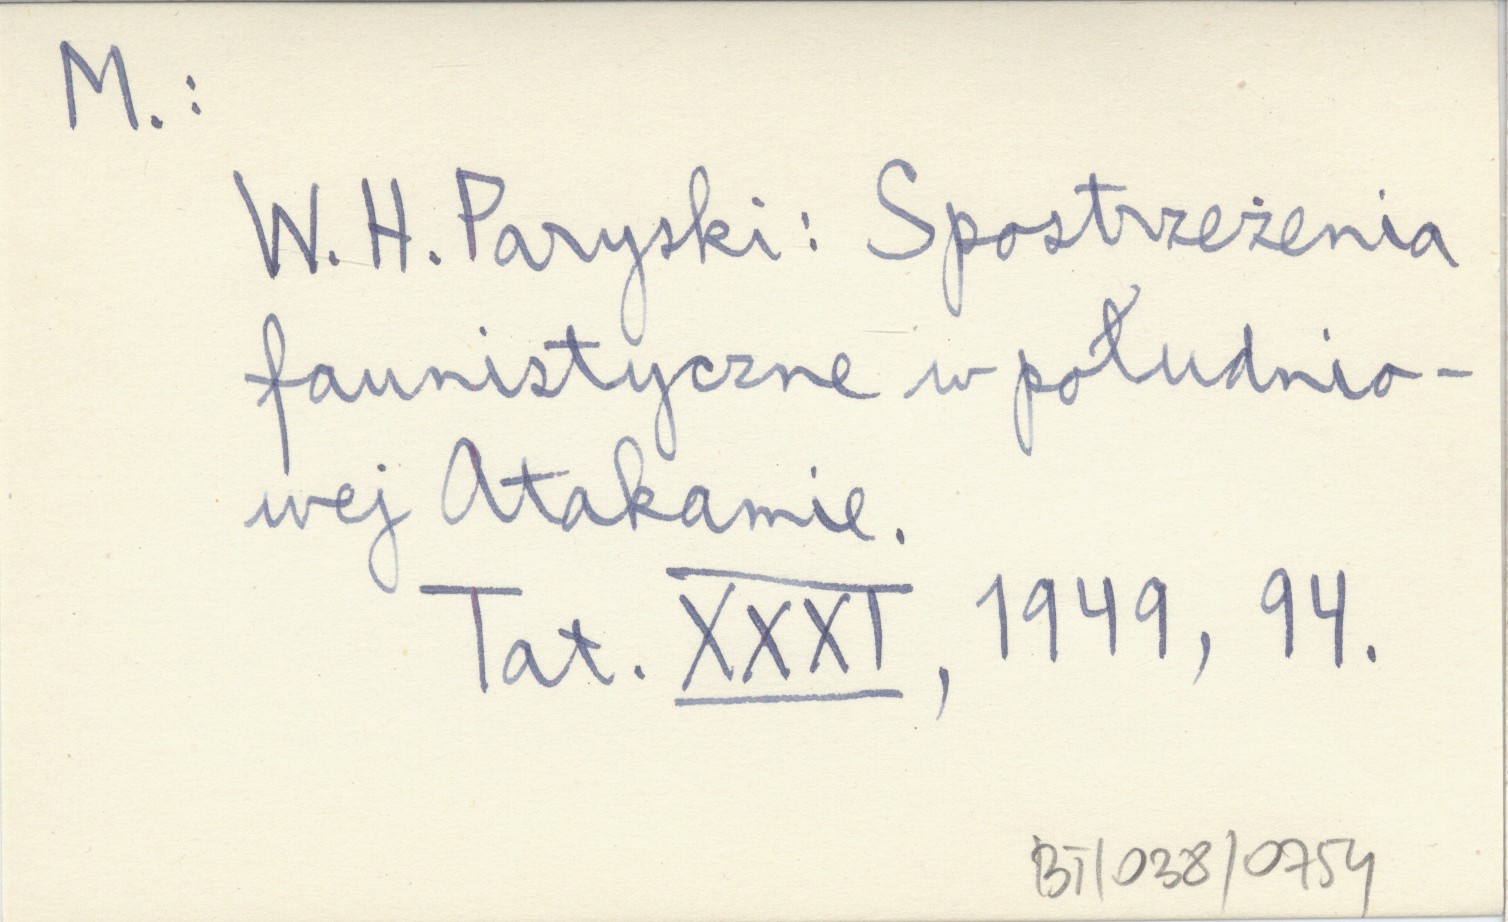 M.:
W. H. Paryski: Spostrzeżenia
faunistyczne w południo-
wej Atakamie.
Tat. XXXI, 1949, 94.
BT/038/0754